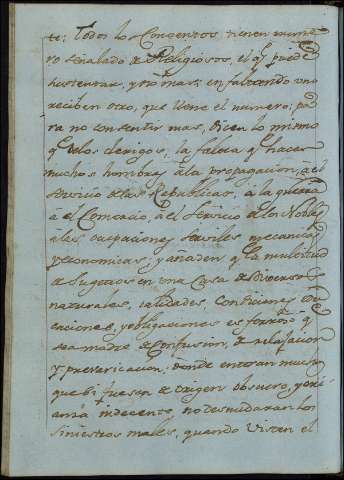 te: Todos los Conventos tienen nume-
ro señalado de Religiosos, el q.e puede
sustentar, y no mas; en falleciendo uno
reciben otro, que llene el numero; pa-
ra no consentir mas, dicen lo mismo
q.e de los clerigos; la falta q.e hacen
muchos hombres à la propagacion, à el
servicio de las Republicas, à la guerra
a el Comercio, à el servicio de los Nobles
ales, ocupaciones serviles, mecanicas
y economicas; y añaden q.e la multitud
de Sugettos en una Casa de diversos
naturales, calidades, Condiciones
y obligaciones es forzoso q.e
sea madre de Confusion, de relajacion
y prevericacion; donde entran muchos
que si fuesen de origen obscuro, y cri-
anza indecente, no desnudaran los
siniestros males, quando visten el